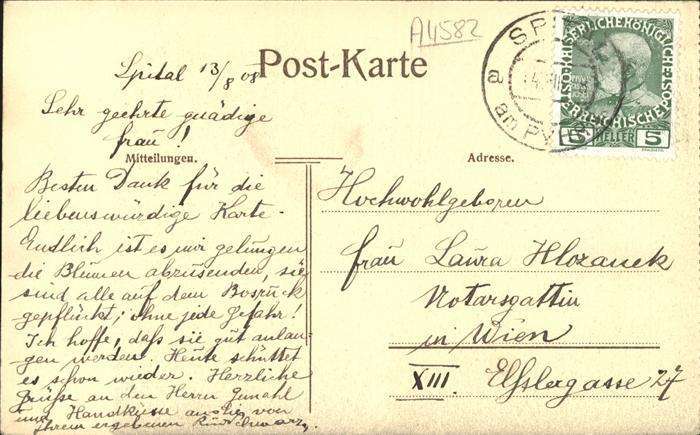 A4582
Post-Karte
Spital 13/8 08
Sehr geehrte gnädige
Frau!
Mitteilungen.
Besten Dank für die
liebenswürdige Karte.
Endlich ist es mir gelungen
die Blumen abzusenden, sie
sind alle auf dem Bosruck
gepflückt; ohne jede Gefahr!
Ich hoffe, daß sie gut anlan-
gen werden. Heute schüttet
es schon wieder. Herzliche
Grüße an den Herrn Gemahl
und Handküsse an Sie von
Ihrem ergebenen
Adresse.
Hochwohlgeboren
Frau Laura Hlozanek
Notarsgattin
in Wien
XIII. Elßlergasse 27
SP
a
am PYH
KAISERLICHEKÖNIGLICHE
ÖSTERREICHISCHE POST
5 HELLER 5